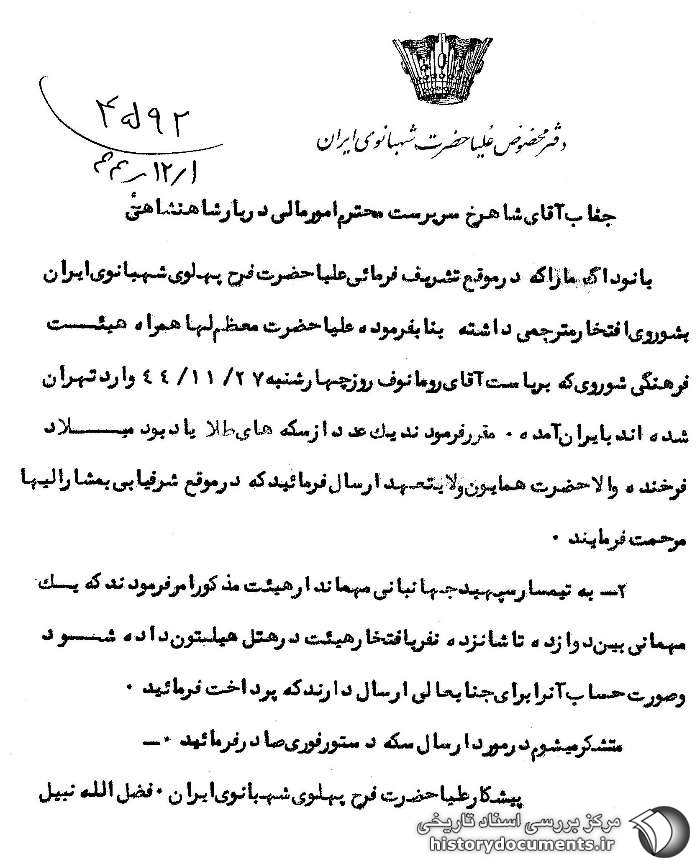 دفتر مخصوص علیاحضرت شهبانوی ایران
جناب آقای شاهرخ سرپرست محترم امور مالی دربار شاهنشاهی
بانو داگمارا که در موقع تشریف فرمائی علیاحضرت فرح پهلوی شهبانوی ایران
بشوروی افتخار مترجمی داشته بنا بفرموده علیاحضرت معظم لها همراه هیئت
فرهنگی شوروی که بریاست آقای رومانوف روز چهارشنبه ۴۴/۱۱/۲۷ وارد تهران
شده اند بایران آمده ۰ مقرر فرمودند یک عدد از سکه های طلا یادبود میلاد
فرخنده والاحضرت همایون ولایتعهد ارسال فرمائید که در موقع شرفیابی بمشارالیها
مرحمت فرمایند ۰
۲ـ به تیمسار سپهبد جهانبانی مهماندار هیئت مذکور امر فرمودند که یک
مهمانی بین دوازده تا شانزده نفر بافتخار هیئت در هتل هیلتون داده شود
و صورت حساب آنرا برای جنابعالی ارسال دارند که پرداخت فرمائید ۰
متشکر میشوم در مورد ارسال سکه دستور فوری صادر فرمائید ۰ـ
پیشکار علیاحضرت فرح پهلوی شهبانوی ایران ۰ فضل الله نبیل
مرکز بررسی اسناد تاریخی
historydocuments.ir